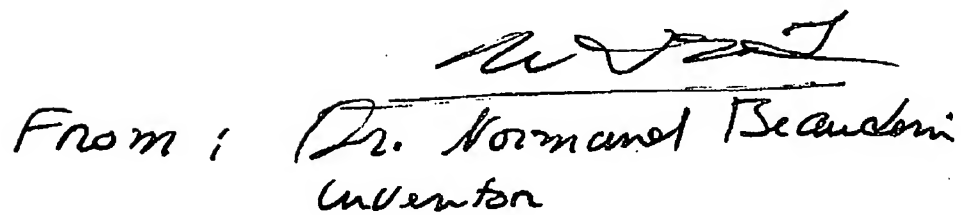 From: Dr. Normand Beaudoin
inventor